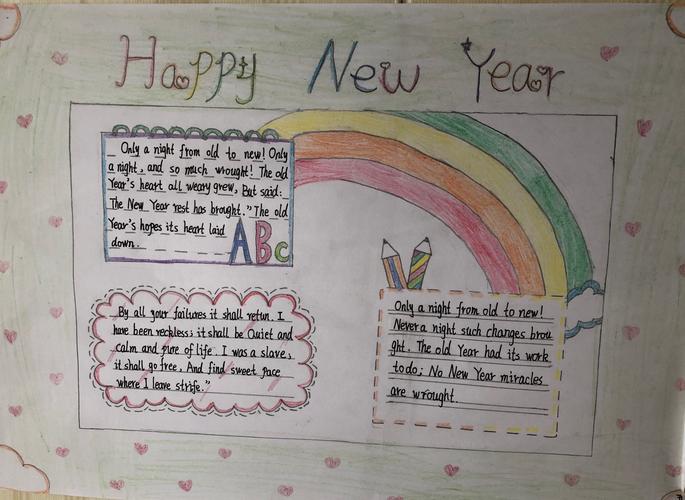 Happy New Year
Only a night from old to new! Only
a night, and so much wrought! The old
Year's heart all weary grew, But said:
The New Year rest has brought." The old
Year's hopes its heart laid
down.
ABc
By all your failures it shall retun. I
have been reckless; it shall be Quiet and
calm and pure of life. I was a slave;
it shall go free, And find sweet pace
where I leave strife."
Only a night from old to new!
Never a night such changes brou
ght. The old Year had its work
to do; No New Year miracles
are wrought